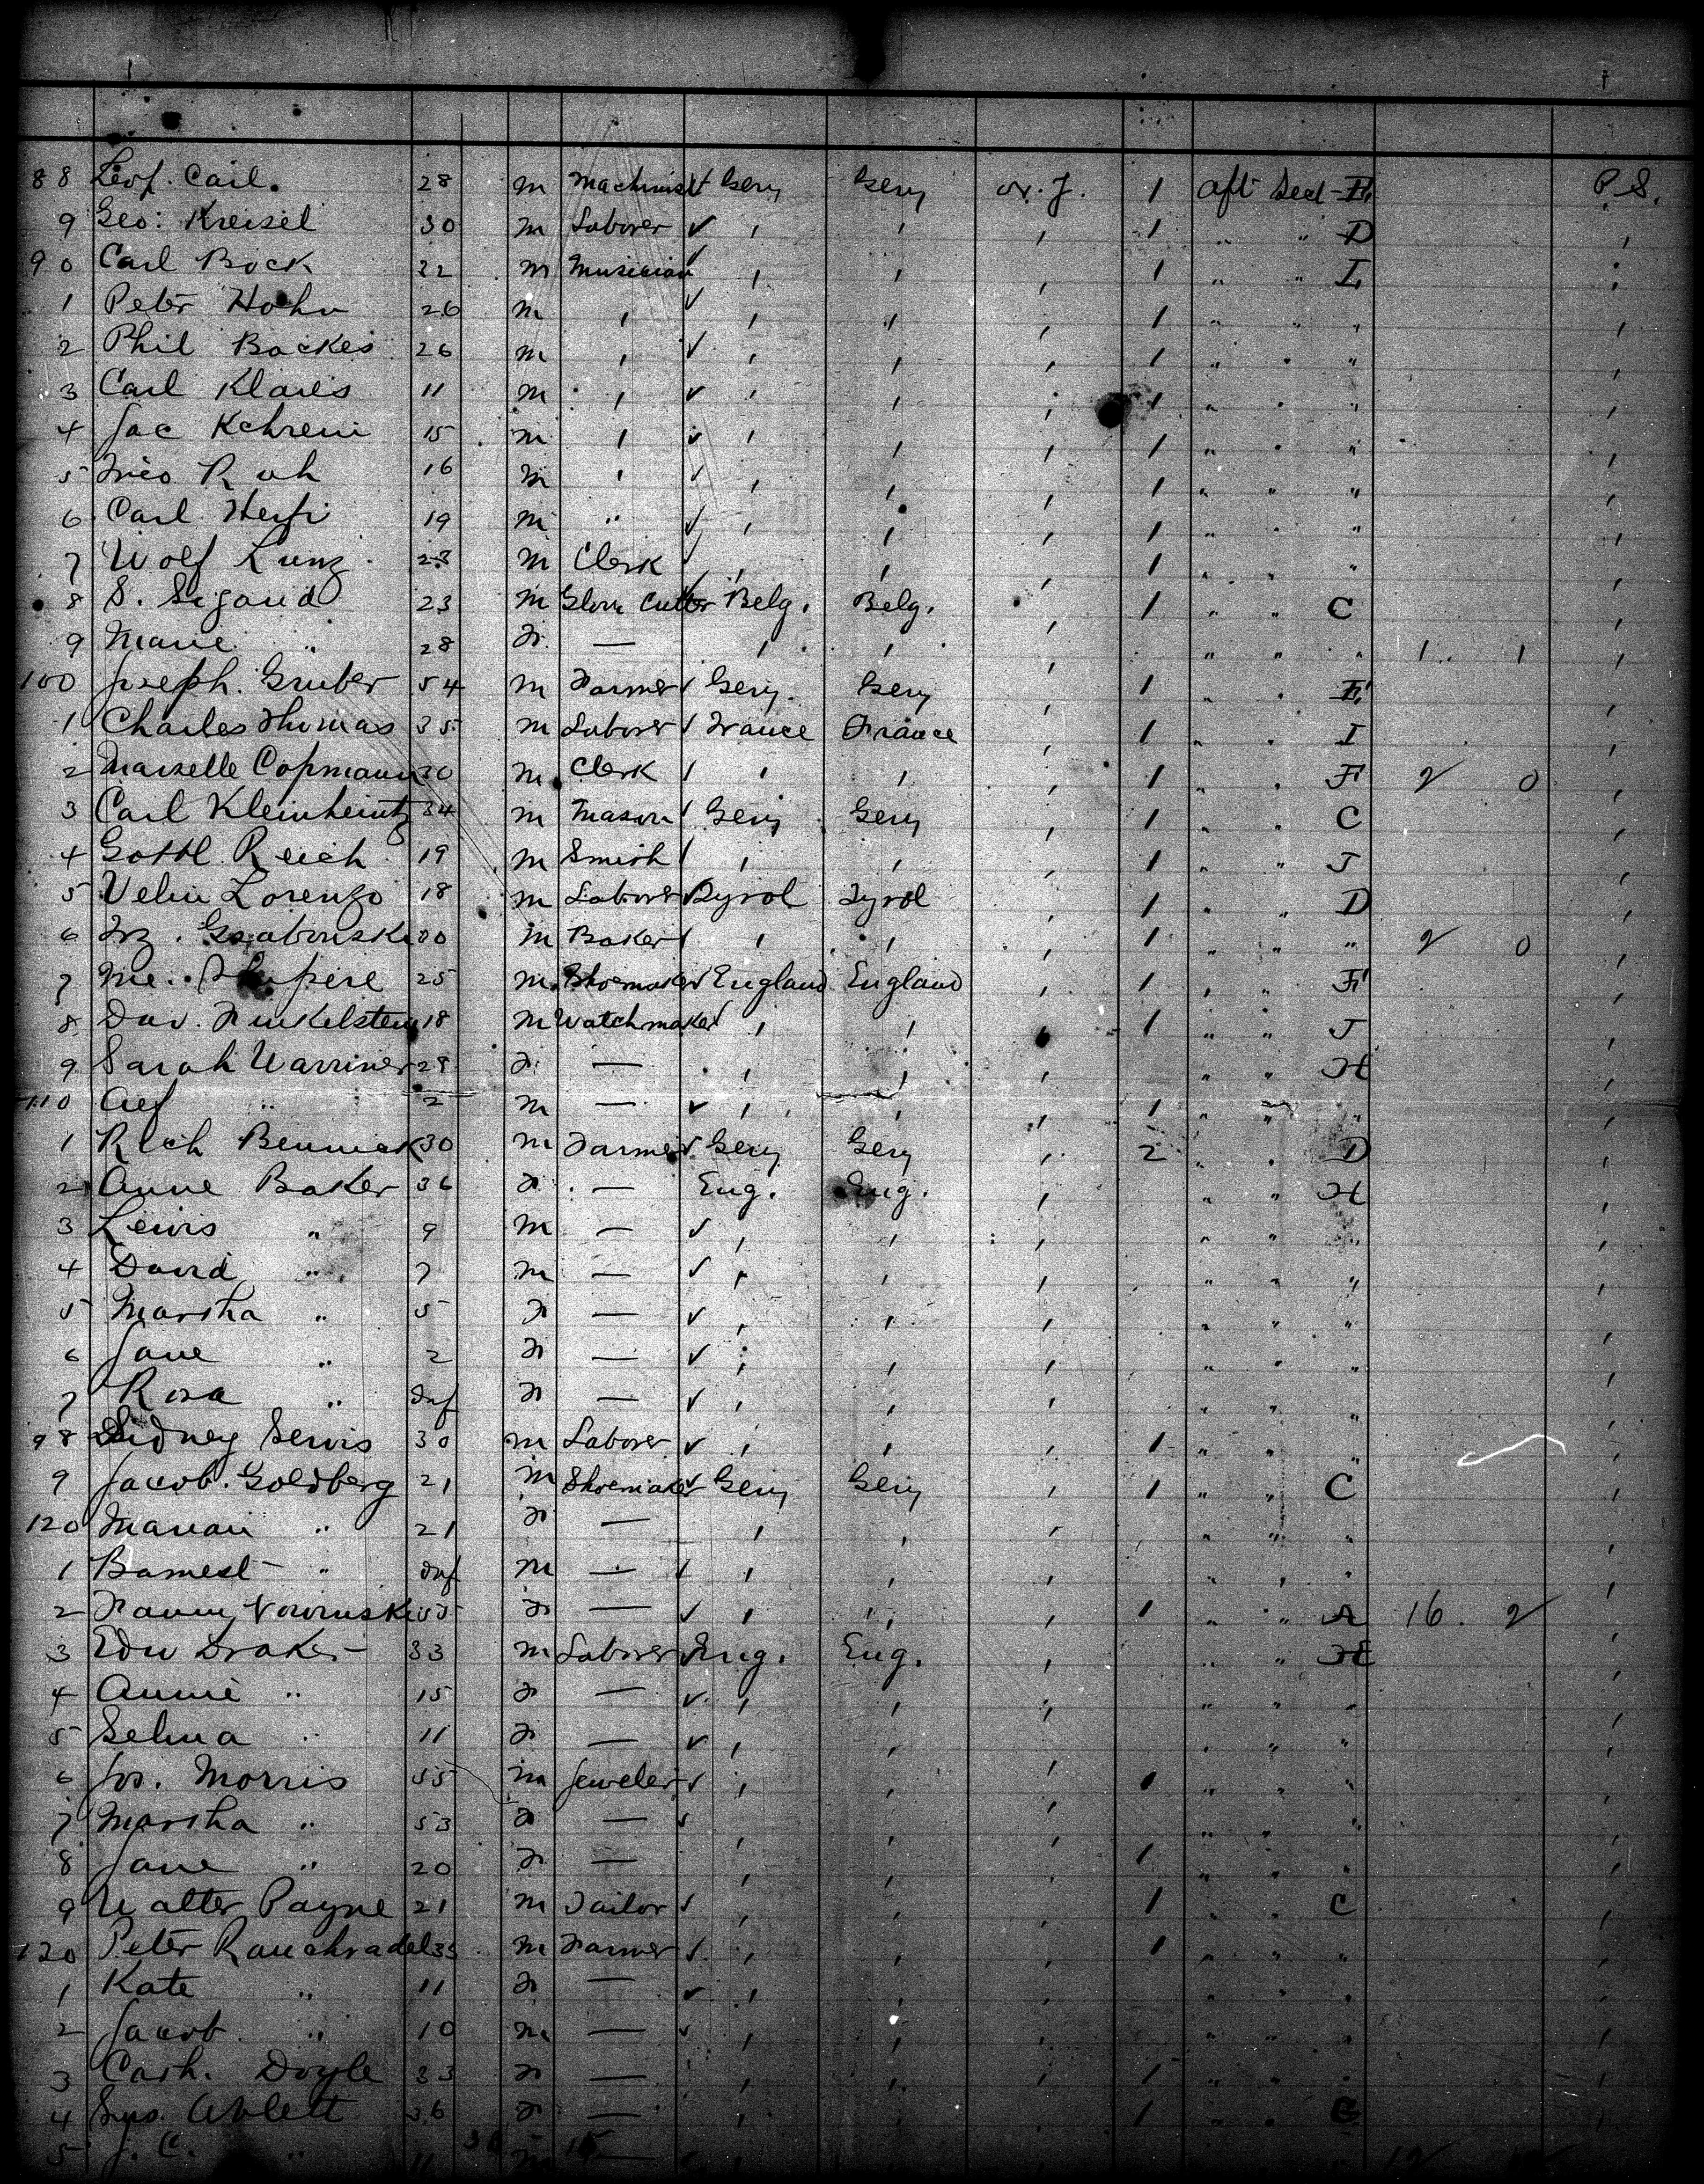 88 Leof. Cail. 28 m Machinist ✓ Gery Gery N.Y. 1 aft Sect E. P.S.
9 Geo: Kreisel 30 m Laborer ✓ , , , 1 " " D ,
90 Carl Bock 32 m Musician ✓ , , , 1 " " I ,
1 Peter Hohn 26 m , ✓ , " , 1 " " " ,
2 Phil Backes 26 m , ✓ , , , 1 " " " ,
3 Carl Klares 11 m , ✓ , , , 1 " " " ,
4 Jac 15 m , ✓ , , , 1 " " " ,
5 Ruh 16 m , ✓ , , , 1 " " " ,
6 Carl 19 m " ✓ , , , 1 " " " ,
7 Wolf Kunz 23 m Clerk ✓ , , , 1 " " " ,
8 S. Sigaud 23 m Glove Cutter ✓ Belg. Belg. , 1 " " C ,
9 Marie " 28 F — , , , " " " 1 1 ,
100 Joseph. Gruber 54 m Farmer ✓ Gery. Gery , 1 " " E ,
1 Charles Thomas 35 m Laborer ✓ France France , 1 " " I ,
2 Marselle Copmann 30 m Clerk ✓ , , , 1 " " F 2 0 ,
3 Carl Kleinheintz 34 m Mason ✓ Gery Gery , 1 " " C ,
4 Gottl Reich 19 m Smith ✓ , , , 1 " " J ,
5 Velin Lorenzo 18 m Laborer ✓ Tyrol Tyrol , 1 " " D ,
6 30 m Baker ✓ , , , 1 " " " 2 0 ,
7 25 m Shoemaker ✓ England England , 1 " " F ,
8 Dav. Finkelstein 18 m Watchmaker ✓ , , , 1 " " J ,
9 Sarah Warriner 28 F — , , , " " H ,
110 Alf " 2 m — ✓ , , , 1 " " " ,
1 Rich 30 m Farmer ✓ Gery Gery , 2 " " D ,
2 Anne Baker 36 F — Eng. Eng. , " " H ,
3 Lewis " 9 m — ✓ , , , " " " ,
4 David " 7 m — ✓ , , , " " " ,
5 Martha " 5 F — ✓ , , , " " " ,
6 Jane " 2 F — ✓ , , , " " " ,
7 Rosa " Inf F — ✓ , , , " " " ,
98 Sidney Servis 30 m Laborer ✓ , , , 1 " " " ,
9 Jacob. Goldberg 21 m Shoemaker ✓ Gery Gery , 1 " " C ,
120 " 21 F — , , , " " " ,
1 Barnest " Inf m — ✓ , , , " " " ,
2 55 F — ✓ , , , 1 " " A 16. 2 ,
3 Edw Drake 33 m Laborer ✓ Eng. Eng. , " " H ,
4 Annie " 15 F — ✓ , , , " " " ,
5 Selma " 11 F — ✓ , , , " " " ,
6 Jos. Morris 55 m Jeweler ✓ , , , 1 " " " ,
7 Martha " 53 F — ✓ , , , " " " ,
8 Jane " 20 F — , , , 1 " " " ,
9 Walter Payne 21 m Tailor ✓ , , , 1 " " C ,
120 Peter Rauchradel 35 m Farmer ✓ , , , 1 " " " ,
1 Kate " 11 F — ✓ , , , " " " ,
2 Jacob " 10 m — ✓ , , , " " " ,
3 Cath. Doyle 33 F — , , , 1 " " " ,
4 Ablett 36 F — , , , 1 " " G ,
5 J. C. " 11 m —